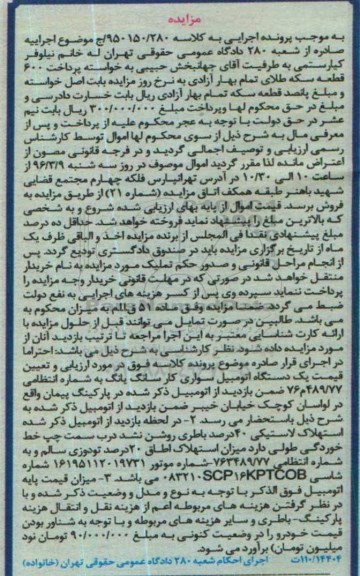 مزایده
به موجب پرونده اجرایی به کلاسه ۹۵۰۱۵۰/۲۸۰/ج موضوع اجراییه
صادره از شعبه ۲۸۰ دادگاه عمومی حقوقی تهران له خانم نیلوفر
کیارستمی به طرفیت آقای جهانبخش حبیبی به خواسته پرداخت ۶۰۰
قطعه سکه طلای تمام بهار آزادی به نرخ روز مزایده بابت اصل خواسته
و مبلغ پانصد قطعه سکه تمام بهار آزادی ریال بابت خسارت دادرسی و
مبلغ در حق محکوم لها وپرداخت مبلغ ۳۰۰/۰۰۰/۰۰۰ ریال بابت نیم
عشر در حق دولت با توجه به عجز محکوم علیه از پرداخت و پس از
معرفی مال به شرح ذیل از سوی محکوم لها اموال توسط کارشناس
رسمی ارزیابی و توصیف اجمالی گردید و در فرجه قانونی مصون از
اعتراض مانده لذا مقرر گردید اموال موصوف در روز سه شنبه ۹۶/۳/۹ از
ساعت ۱۰ الی ۱۰/۳۰ در آدرس تهرانپارس فلکه چهارم مجتمع قضایی
شهید باهنر طبقه همکف اتاق مزایده (شماره ۲۱) از طریق مزایده به
فروش برسد. قیمت اموال از پایه بهای ارزیابی شده شروع و به شخصی
که بالاترین مبلغ را پیشنهاد نماید فروخته خواهد شد. حداقل ده درصد
مبلغ پیشنهادی نقدا فی المجلس از برنده مزایده اخذ و الباقی ظرف یک
ماه از تاریخ برگزاری مزایده باید در صندوق دادگستری تودیع گردد. پس
از انجام مراحل قانونی و صدور حکم تملیک مورد مزایده به نام خریدار
منتقل خواهد شد در صورتی که در مهلت قانونی خریدار وجه مزایده را
پرداخت ننماید سپرده وی پس از کسر هزینه های اجرایی به نفع دولت
ضبط می گردد. ضمنا مزایده وفق ماده ۵۱ ق.ا.م به میزان محکوم به
می باشد. طالبین در صورت تمایل می توانند قبل از حلول مزایده با
ارائه کارت شناسایی معتبر به این اجرا مراجعه تا ترتیب بازدید آنان از
مورد مزایده داده شود. نظر کارشناسی به شرح ذیل می باشد: احتراما
در اجرای قرار صادره موضوع پرونده کلاسه فوق در مورد ارزیابی و تعیین
قیمت یک دستگاه اتومبیل سواری کار سانگ یانگ به شماره انتظامی
۷۶۳۴۸۹/۷۷ ضمن بازدید از اتومبیل ذکر شده در پارکینگ پیمان واقع
در لواسان کوچک خیابان خیبر ضمن بازدید از اتومبیل ذکر شده به
شرح ذیل باستحضار می رسد. ۲- در لحظه بازدید از اتومبیل ذکر شده
استهلاک لاستیکی ۴۰درصد باطری روشن نشد درب سمت چپ خط
خوردگی طولی دارد میزان استهلاک اطاق ۲۰درصد تودوزی سالم و به
شماره انتظامی ۷۶۳۴۸۹/۷۷-شماره موتور ۱۶۱۹۵۱۱۲۰۱۹۷۳۱ شماره
شاسی KPTCOB۱۶SCP۰۸۳۲۱۰ می باشد. ۳- میزان قیمت پایه
اتومبیل فوق الذکر با توجه به نوع و مدل و وضعیت ذکر شده و با
در نظر گرفتن هزینه های مربوطه اعم از هزینه نقل و انتقال هزینه
پارکینگ- باطری و سایر هزینه های مربوطه و با توجه به شناور بودن
قیمت خودرو را در وضعیت کنونی به مبلغ ۹۰/۰۰۰/۰۰۰ تومان نود
میلیون تومان) برآورد می شود.
۱۱۰/۱۴۴۰۴ت اجرای احکام شعبه ۲۸۰ دادگاه عمومی حقوقی تهران (خانواده)